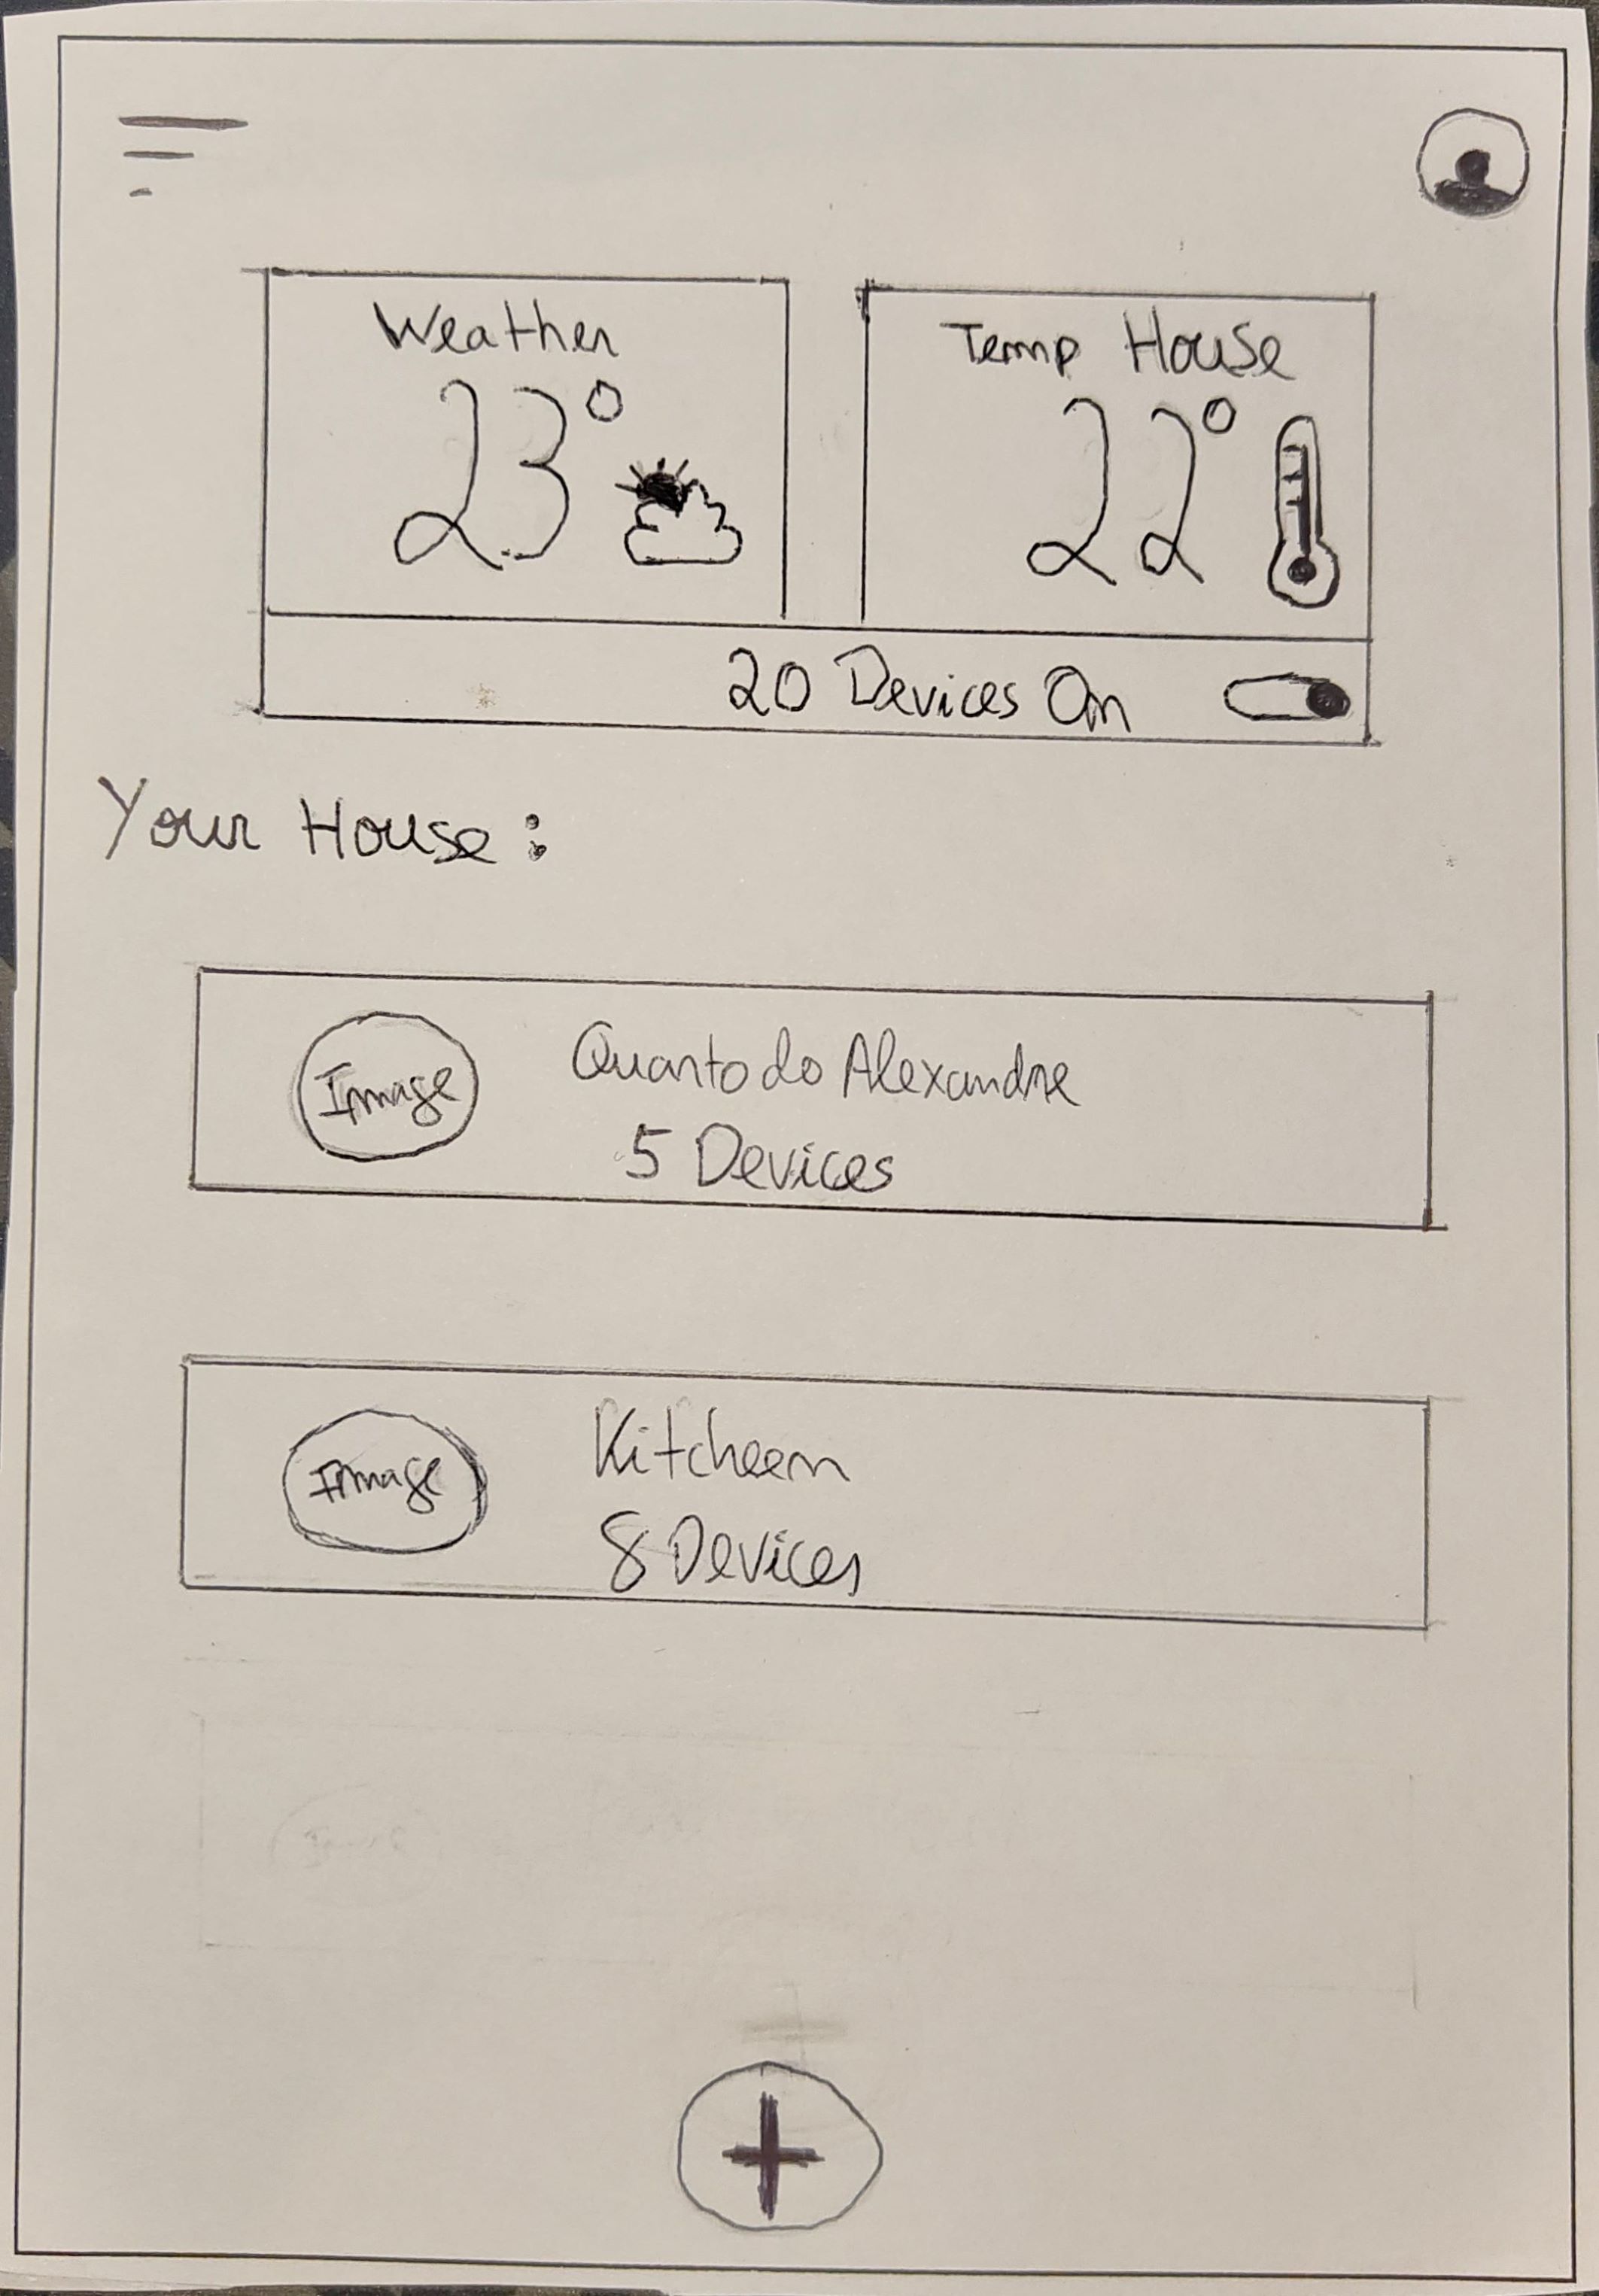 Weather
23°
Temp House
22°
20 Devices On
Your House:
Image
Quarto do Alexandre
5 Devices
Image
Kitcheen
8 Devices
+